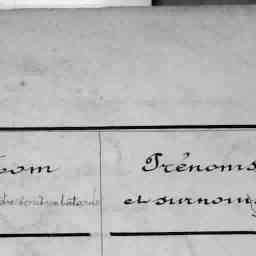 Nom
Prénoms
et surnoms